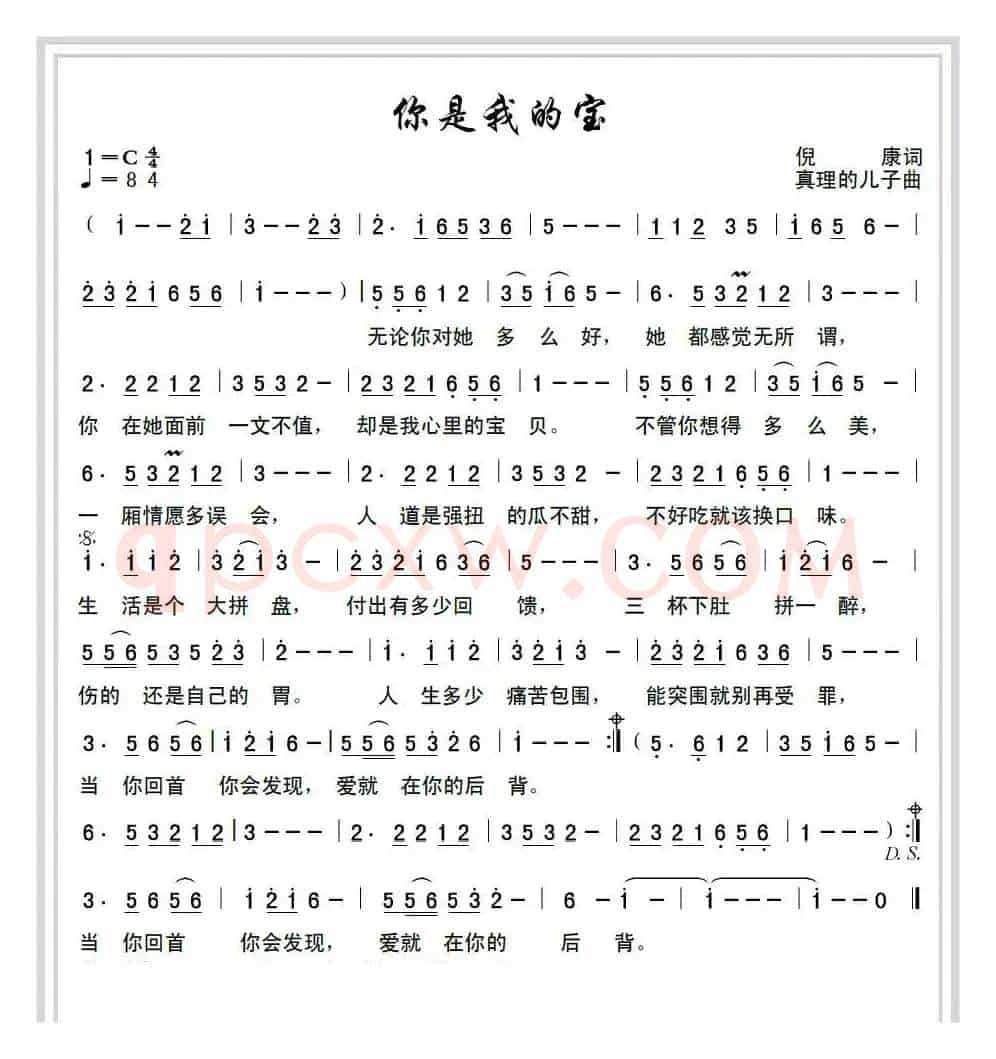 你是我的宝
1=C 4/4
♩=84
倪 康词
真理的儿子曲
( i - - 2̇ i | 3̇ - - 2̇ 3̇ | 2̇ · i 6 5 3 6 | 5 - - - | 1 1 2 3 5 | i 6 5 6 - |
2̇ 3̇ 2̇ i 6 5 6 | i - - - ) | 5̣ 5̣ 6̣ 1 2 | 3 5 i 6 5 - | 6 · 5 3 2 1 2 | 3 - - - |
无论你对她 多 么 好， 她 都感觉无所 谓，
2 · 2 2 1 2 | 3 5 3 2 - | 2 3 2 1 6̣ 5̣ 6̣ | 1 - - - | 5̣ 5̣ 6̣ 1 2 | 3 5 i 6 5 - |
你 在她面前 一文不值， 却是我心里的宝 贝。 不管你想得 多 么 美，
6 · 5 3 2 1 2 | 3 - - - | 2 · 2 2 1 2 | 3 5 3 2 - | 2 3 2 1 6̣ 5̣ 6̣ | 1 - - - |
一 厢情愿多误 会， 人 道是强扭 的瓜不甜， 不好吃就该换口 味。
:S:
i · i i 2̇ | 3̇ 2̇ i 3̇ - | 2̇ 3̇ 2̇ i 6 3 6 | 5 - - - | 3 · 5 6 5 6 | i 2̇ i 6 - |
生 活是个 大拼 盘， 付出有多少回 馈， 三 杯下肚 拼一 醉，
5 5 6 5 3 5 2̇ 3̇ | 2̇ - - - | i · i i 2̇ | 3̇ 2̇ i 3̇ - | 2̇ 3̇ 2̇ i 6 3 6 | 5 - - - |
伤的 还是自己的 胃。 人 生多少 痛苦包围， 能突围就别再受 罪，
3 · 5 6 5 6 | i 2̇ i 6 - | 5 5 6 5 3̇ 2̇ 6 | i - - - :‖ ( 5̣ · 6̣ 1 2 | 3 5 i 6 5 - |
当 你回首 你会发现， 爱就 在你的后 背。
6 · 5 3 2 1 2 | 3 - - - | 2 · 2 2 1 2 | 3 5 3 2 - | 2 3 2 1 6̣ 5̣ 6̣ | 1 - - - ) :‖
D. S.
3 · 5 6 5 6 | i 2̇ i 6 - | 5 5 6 5 3̇ 2̇ - | 6 - i - | i - - - | i - - 0 ‖
当 你回首 你会发现， 爱就 在你的 后 背。
qpcxw.COM